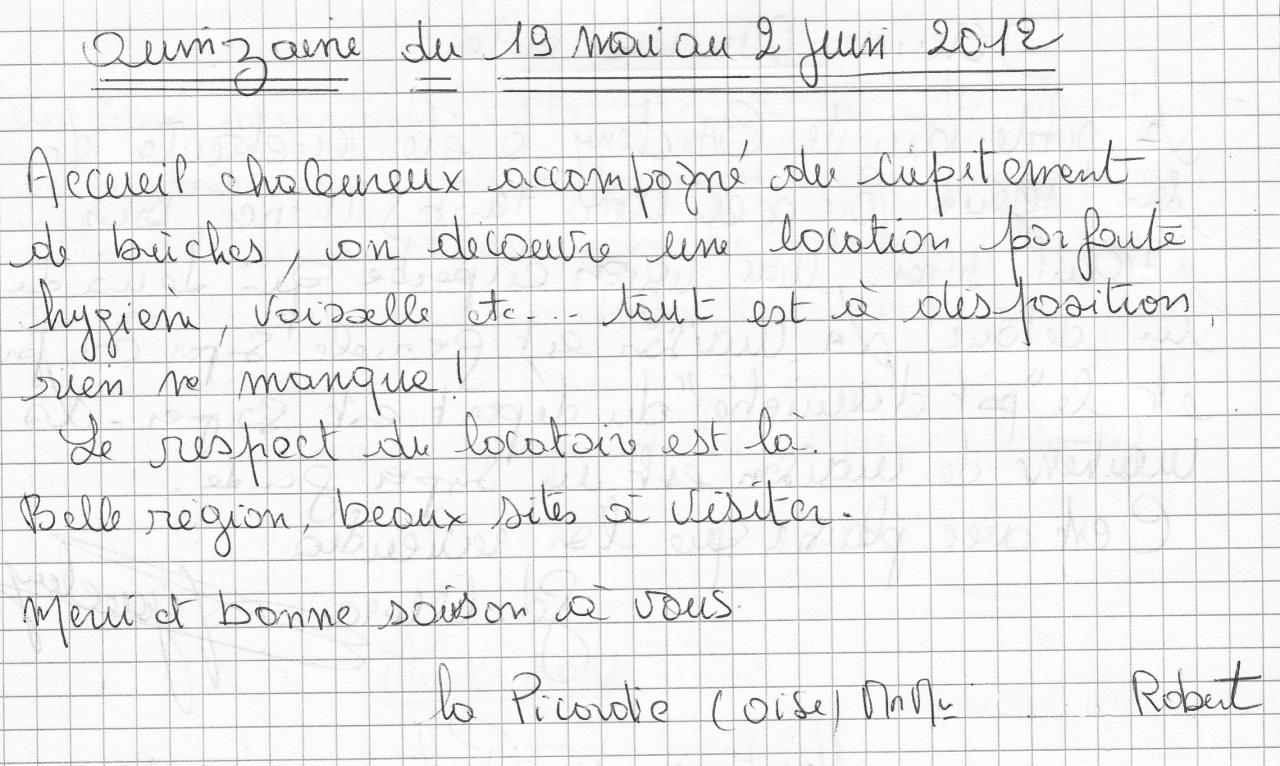 Quinzaine du 19 mai au 2 juin 2012
Accueil chaleureux accompagné du crépitement
de bûches, on découvre une location parfaite
hygiène, vaisselle etc... tout est à disposition,
rien ne manque !
Le respect du locataire est là.
Belle région, beaux sites à visiter.
Merci et bonne saison à vous.
la Picardie (oise) Mr Me Robert